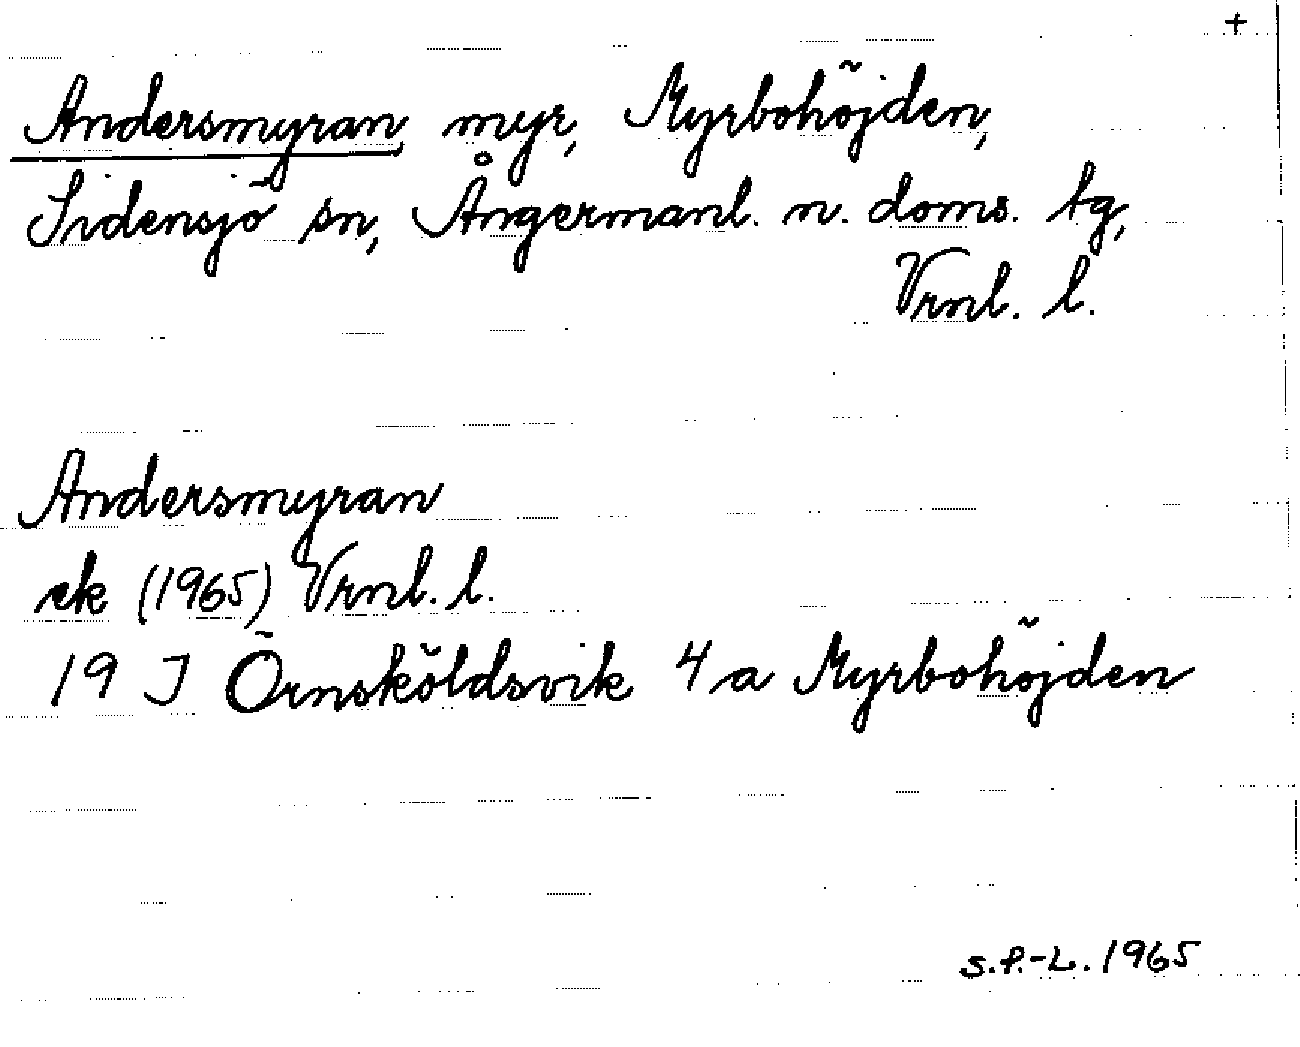 +
Andersmyran, myr, Myrbohöjden,
Sidensjö sn, Ångermanl. n. doms. tg,
Vrnl. l.
Andersmyran
ek (1965) Vrnl. l.
19 J Örnsköldsvik 4 a Myrbohöjden
S.P.-L. 1965